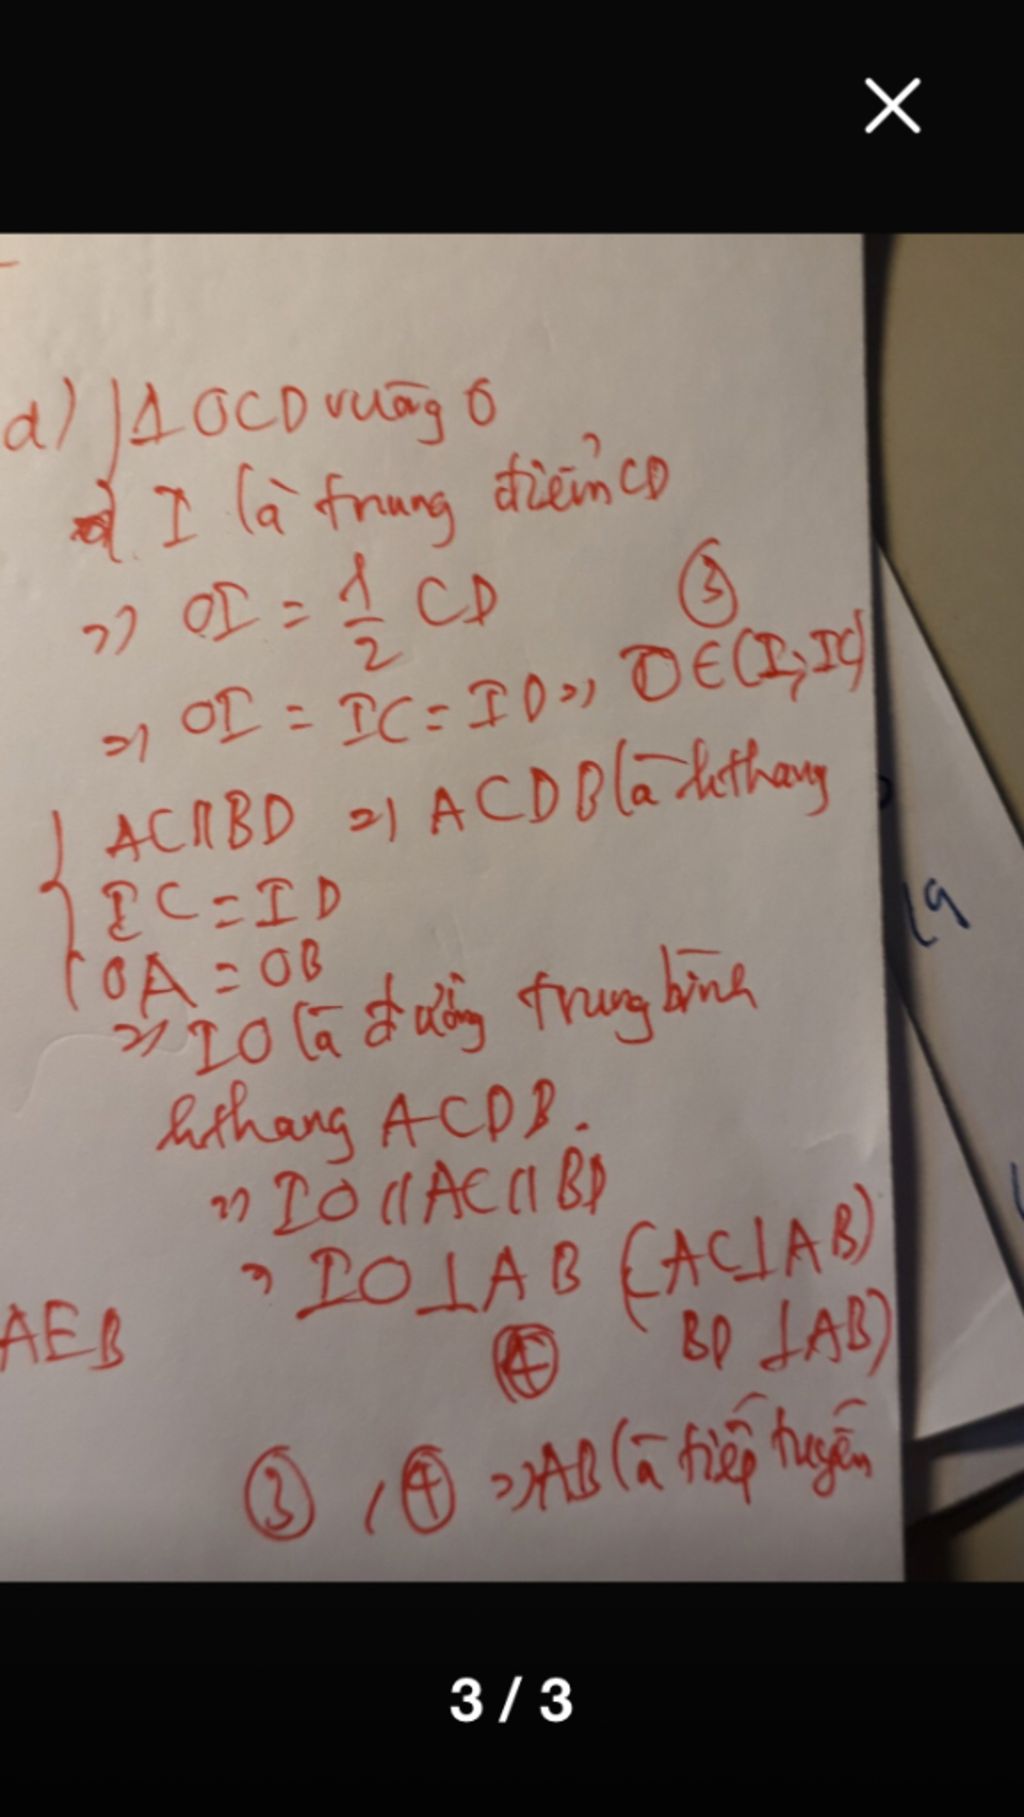 d) Δ OCD vuông O
I là trung điểm CD
=> OI = 1/2 CD
③
=> OI = IC = ID => O ∈ (I; IC)
AC // BD => ACDB là hthang
IC = ID
OA = OB
=> IO là đường trung bình
hthang ACDB.
=> IO // AC // BD
=> IO ⊥ AB (AC ⊥ AB)
BD ⊥ AB)
④
AEB
③, ④ => AB là tiếp tuyến
19
3 / 3